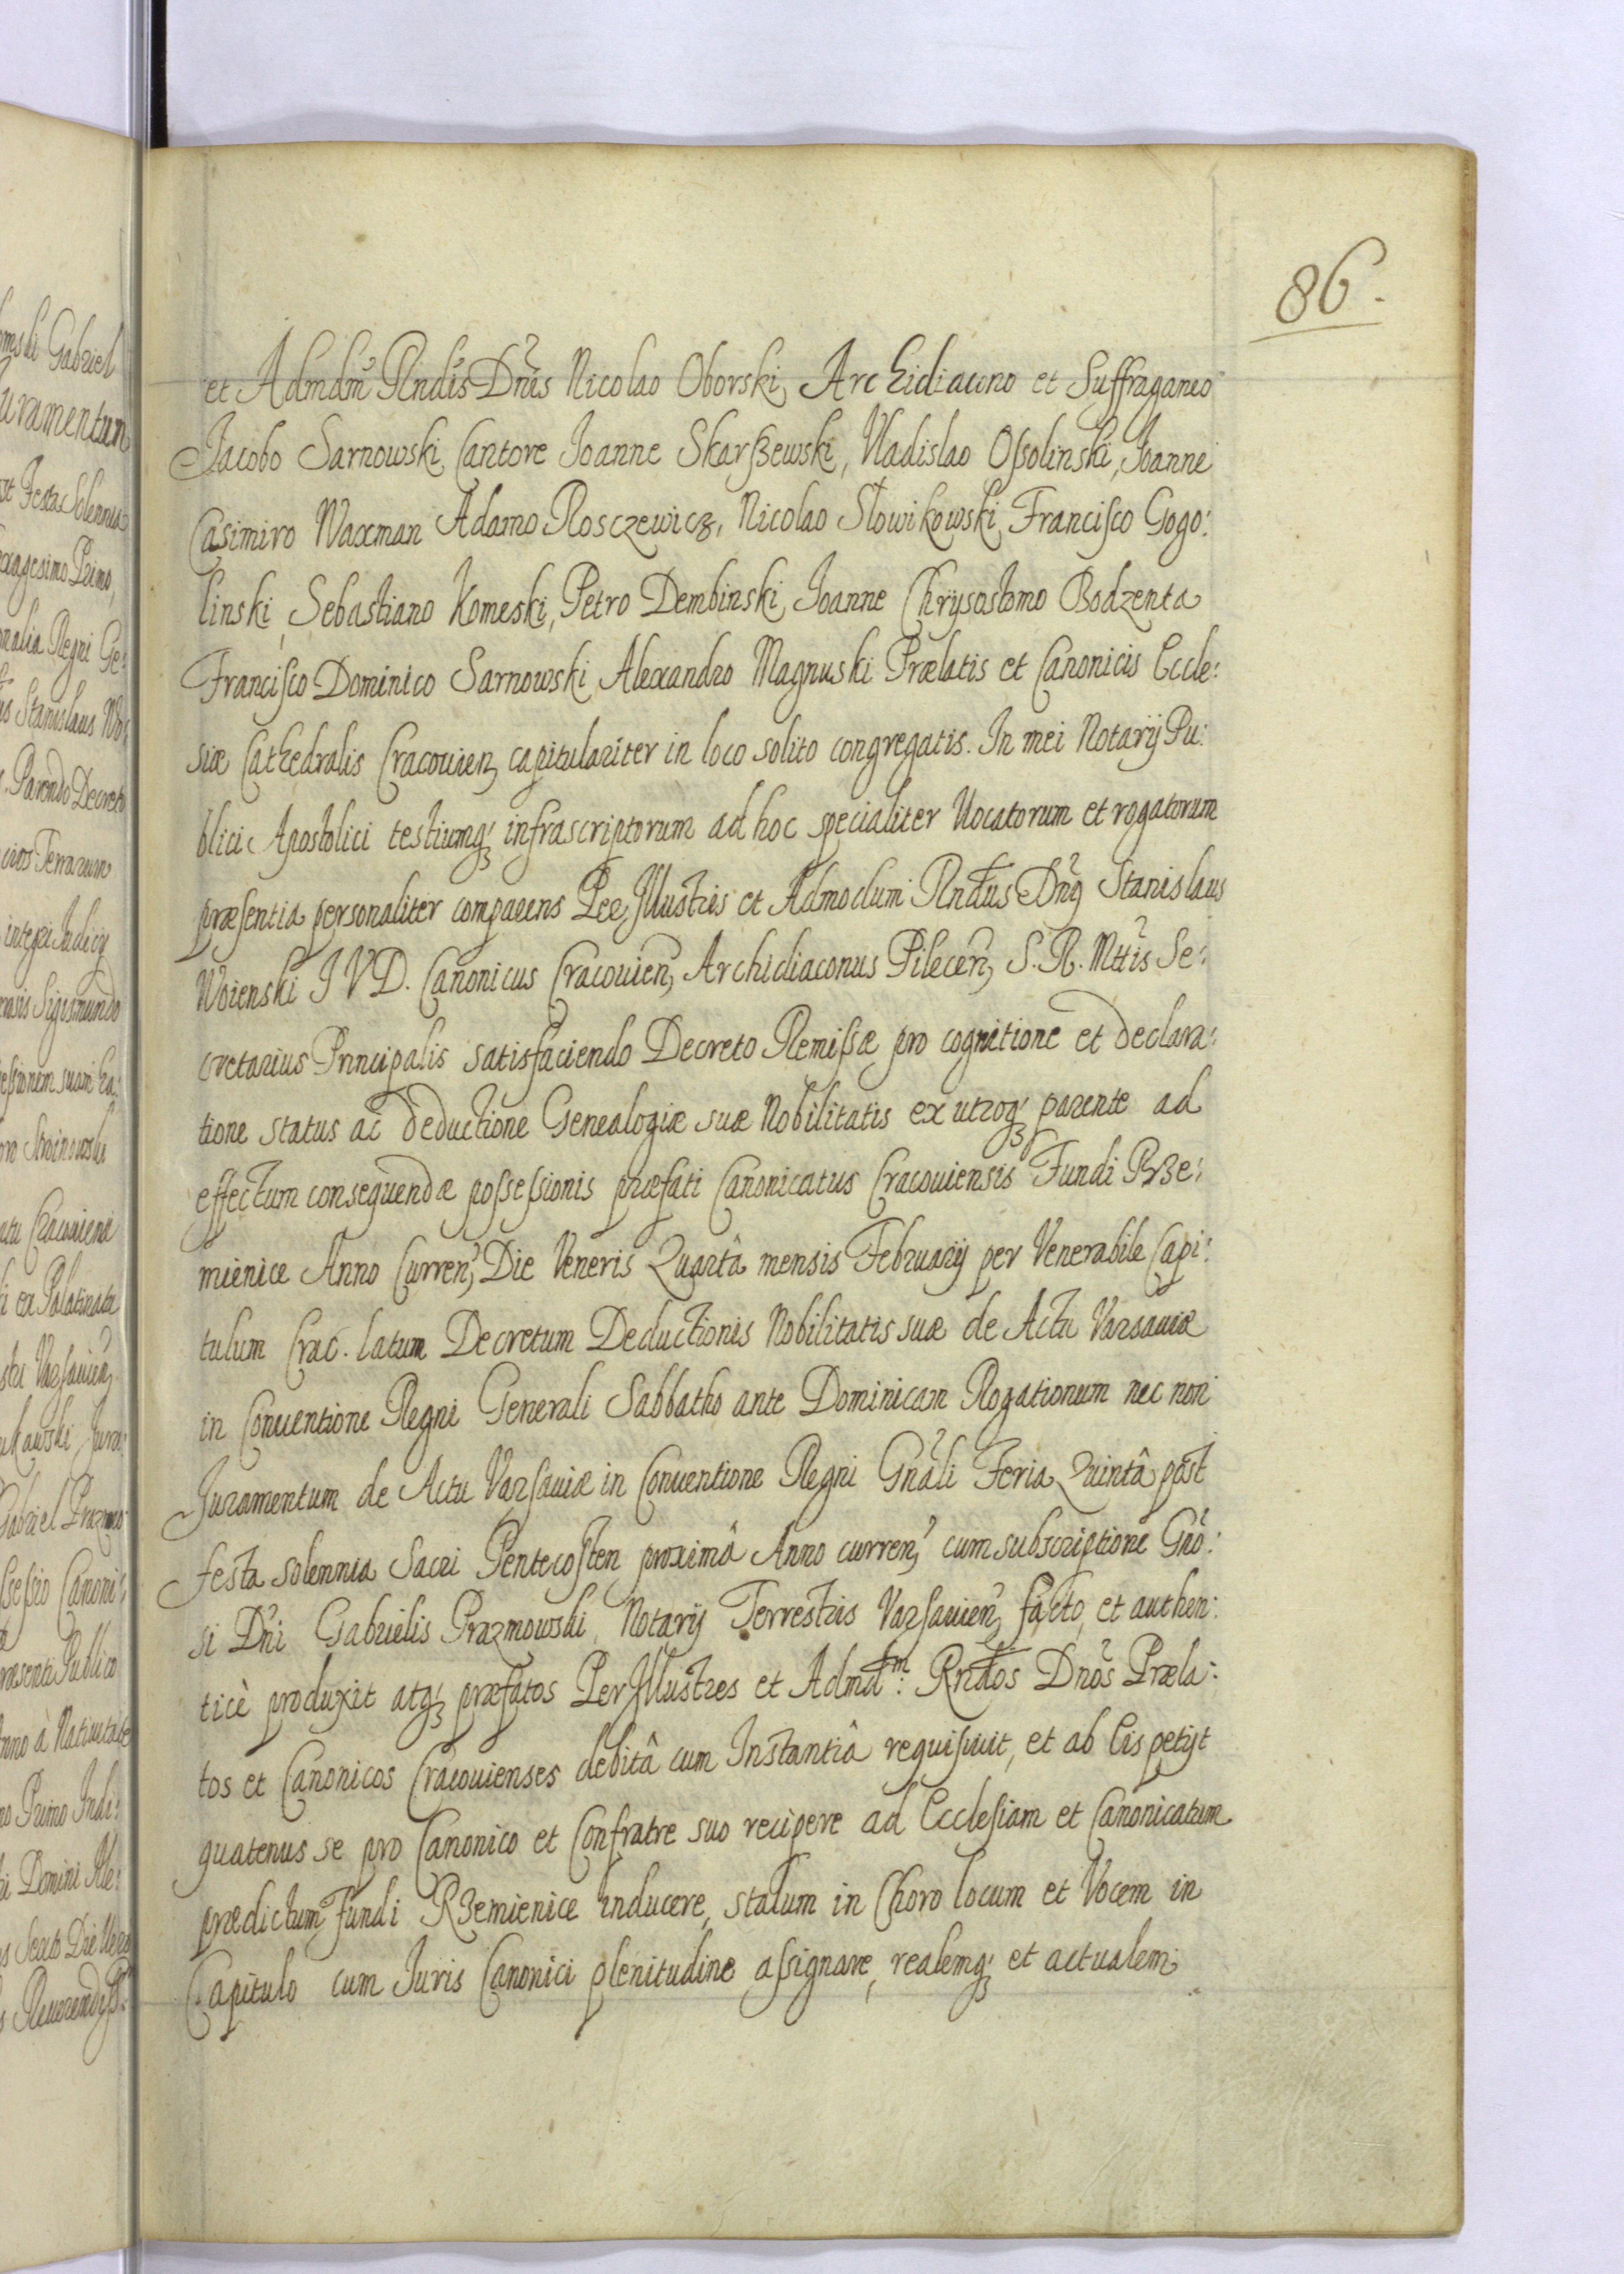 86.
et Admdm̃ Rndis Dnis Nicolao Oborski, Archidiacono et Suffraganeo
Jacobo Sarnowski Cantore Joanne Skarßewski, Vladislao Oßolinski, Joanne
Casimiro Waxman Adamo Rosczewicz, Nicolao Słowikowski, Francisco Gogo:
linski, Sebastiano Komeski, Petro Dembinski, Joanne Chrÿsostomo Bodzenta
Francisco Dominico Sarnowski Alexandro Magnuski Prælatis et Canonicis Eccle:
siæ Cathedralis Cracouien, capitulariter in loco solito congregatis. In mei Notarÿ Pu:
blici Apostolici testiumq; infrascriptorum ad hoc specialiter Uocatorum et rogatorum
præsentia personaliter comparens Per Jllustris et Admodum Rndus Dnus Stanislaus
Woienski J V D. Canonicus Cracouien, Archidiaconus Pilecen, S. R. Mttis Se:
cretarius Principalis satisfaciendo Decreto Remißæ pro cognitione et declara:
tione status ac deductione Genealogiæ suæ Nobilitatis ex utroq; parente ad
effectum consequendæ possessionis præfati Canonicatus Cracouiensis Fundi Rze:
mienice Anno Curren, Die Veneris Quartâ mensis Februarÿ per Venerabile Capi:
tulum Crac. latum Decretum Deductionis Nobilitatis suæ de Actu Varsauiæ
in Conuentione Regni Generali Sabbatho ante Dominicam Rogationum nec non
Juramentum de Actu Varsauiæ in Conuentione Regni Gnãli Feria Quintâ post
festa solennia Sacri Pentecosten proximâ Anno curren, cum subscriptione Gnõ:
si Dni Gabrielis Prazmowski Notarÿ Terrestris Varsauien, facto, et authen:
ticè produxit atq; præfatos Per Jllustres et Admdm: Rndos Dnos Præla:
tos et Canonicos Cracouienses debitâ cum Instantiâ requisiuit, et ab Eis petÿt
quatenus se pro Canonico et Confratre suo recipere ad Ecclesiam et Canonicatum
prædictum Fundi Rzemienice Inducere, stalum in Choro locum et Vocem in
Capitulo cum Juris Canonici plenitudine aßignare, realemq; et actualem